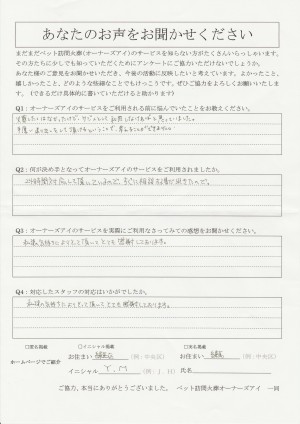 あなたのお声をお聞かせください
まだまだペット訪問火葬(オーナーズアイ)のサービスを知らない方がたくさんいらっしゃいます。
その方たちに少しでも知っていただくためにアンケートにご協力いただけないでしょうか。
あなた様のご意見をお聞かせいただき、今後の活動に反映したいと考えています。よかったこと、
嬉しかったこと、どのような些細なことでもけっこうです。ぜひご協力をよろしくお願いいたしま
す。(できるだけ具体的に書いていただけると助かります)
Q1：オーナーズアイのサービスをご利用される前に悩んでいたことをお教えください。
Q2：何が決め手となってオーナーズアイのサービスをご利用されましたか。
24時間対応して頂いているので、すぐに相談する事が出来たので。
Q3：オーナーズアイのサービスを実際にご利用なさってみての感想をお聞かせください。
Q4：対応したスタッフの対応はいかがでしたか。
□匿名掲載 □イニシャル掲載 □実名掲載
お住まい 緑区 (例：中央区) お住まい 緑区 (例：中央区)
ホームページでご紹介
イニシャル Y.M (例：J.H) 氏名
ご協力、本当にありがとうございました。 ペット訪問火葬オーナーズアイ 一同